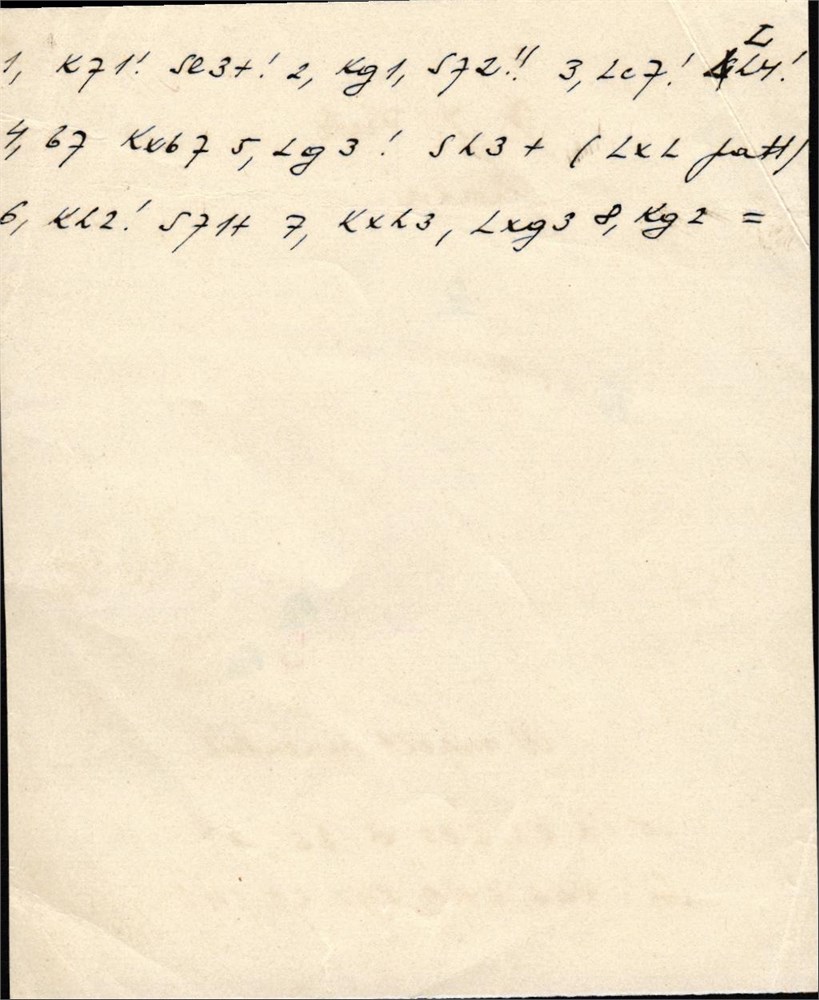 1, Kf1! Se3+! 2, Kg1, Sf2!! 3, Lc7! Lh4!
4, b7 Kxb7 5, Lg3! Sh3+ (LxL patt)
6, Kh2! Sf1+ 7, Kxh3, Lxg3 8, Kg2 =